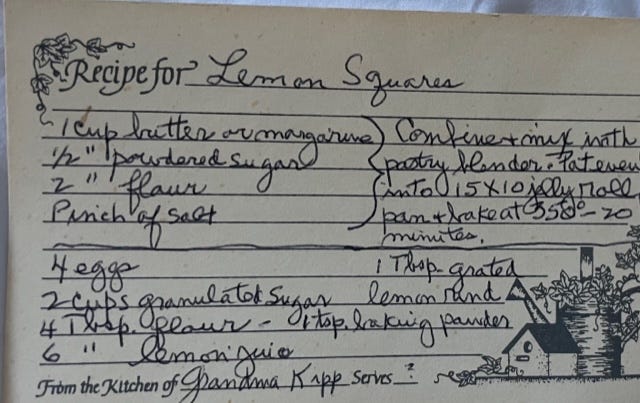 Recipe for Lemon Squares
1 cup butter or margarine } Combine + mix with
1/2 " powdered sugar pastry blender. Pat even
2 " flour into 15X10 jelly roll
Pinch of salt pan + bake at 350° - 20
minutes.
4 eggs 1 Tbsp. grated
2 cups granulated sugar lemon rind
4 Tbsp. flour - 1 tsp. baking powder
6 " lemon juice
From the Kitchen of Grandma Kipp Serves ?